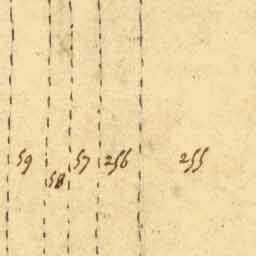 59
58
57
256
255